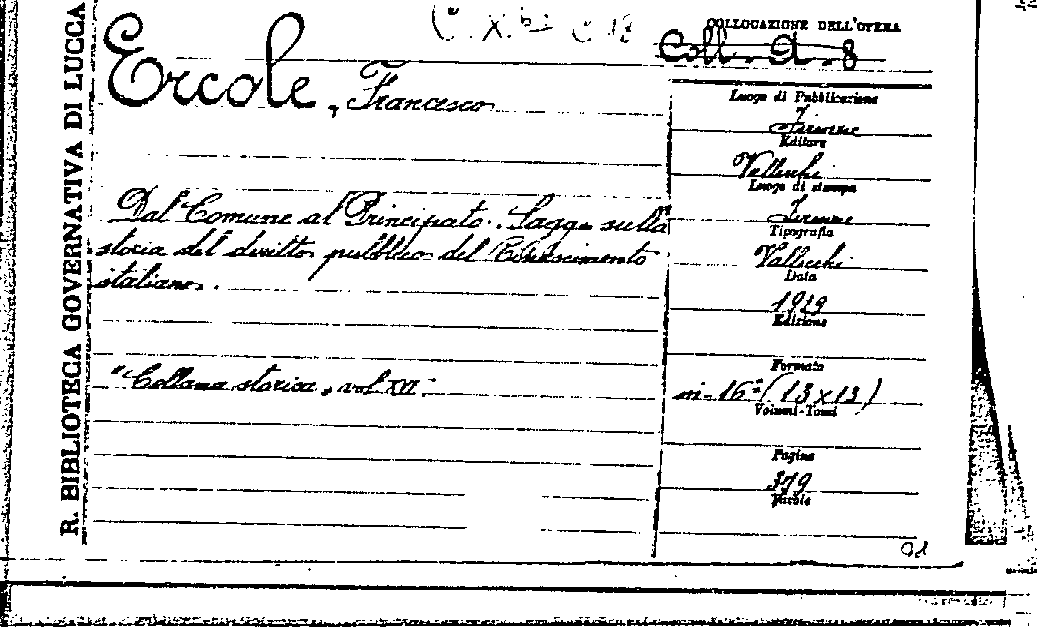 R. BIBLIOTECA GOVERNATIVA DI LUCCA
C. X. C 12
COLLOCAZIONE DELL'OPERA
Coll. A. 8
Ercole, Francesco
Luogo di Pubblicazione
Firenze
Editore
Vallecchi
Luogo di stampa
Dal Comune al Principato. Saggi sulla
storia del diritto pubblico del Rinascimento
italiano.
Firenze
Tipografia
Vallecchi
Data
1929
Edizione
Formato
"Collana storica, vol XVI".
in-16° (13x13)
Volumi-Tomi
Pagine
379
Tavole